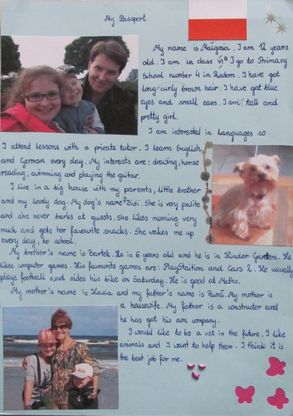 My Passport
My name is Małgosia. I am 12 years
old. I am in class VI. I go to Primary
School number 4 in Radom. I have got
long curly brown hair. I have got blue
eyes and small ears. I am tall and
pretty girl.
I am interested in languages so
I attend lessons with a private tutor. I learn English
and German every day. My interests are: drawing, horse
reading, swimming and playing the guitar.
I live in a big house with my parents, little brother
and my lovely dog. My dog's name Zidi. She is very polite
and she never barks at guests. She likes running very
much and gets her favourite snacks. She wakes me up
every day, to school.
My brother's name is Bartek. He is 6 years old and he is in Kinder Garden. He
likes computer games. His favourite games are: PlayStation and Cars 2. He usually
plays football and rides his bike on Saturday. He is good at Maths.
My mother's name is Kasia and my father's name is Paweł. My mother is
a housewife. My father is a constructor and
he has got his own company.
I would like to be a vet in the future. I like
animals and I want to help them. I think it is
the best job for me.